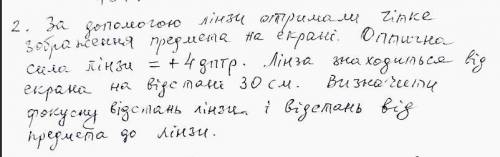 2. За допомогою лінзи отримали чітке
зображення предмета на екрані. Оптична
сила лінзи = + 4 дптр. Лінза знаходиться від
екрана на відстані 30 см. Визначити
фокусну відстань лінзи і відстань від
предмета до лінзи.